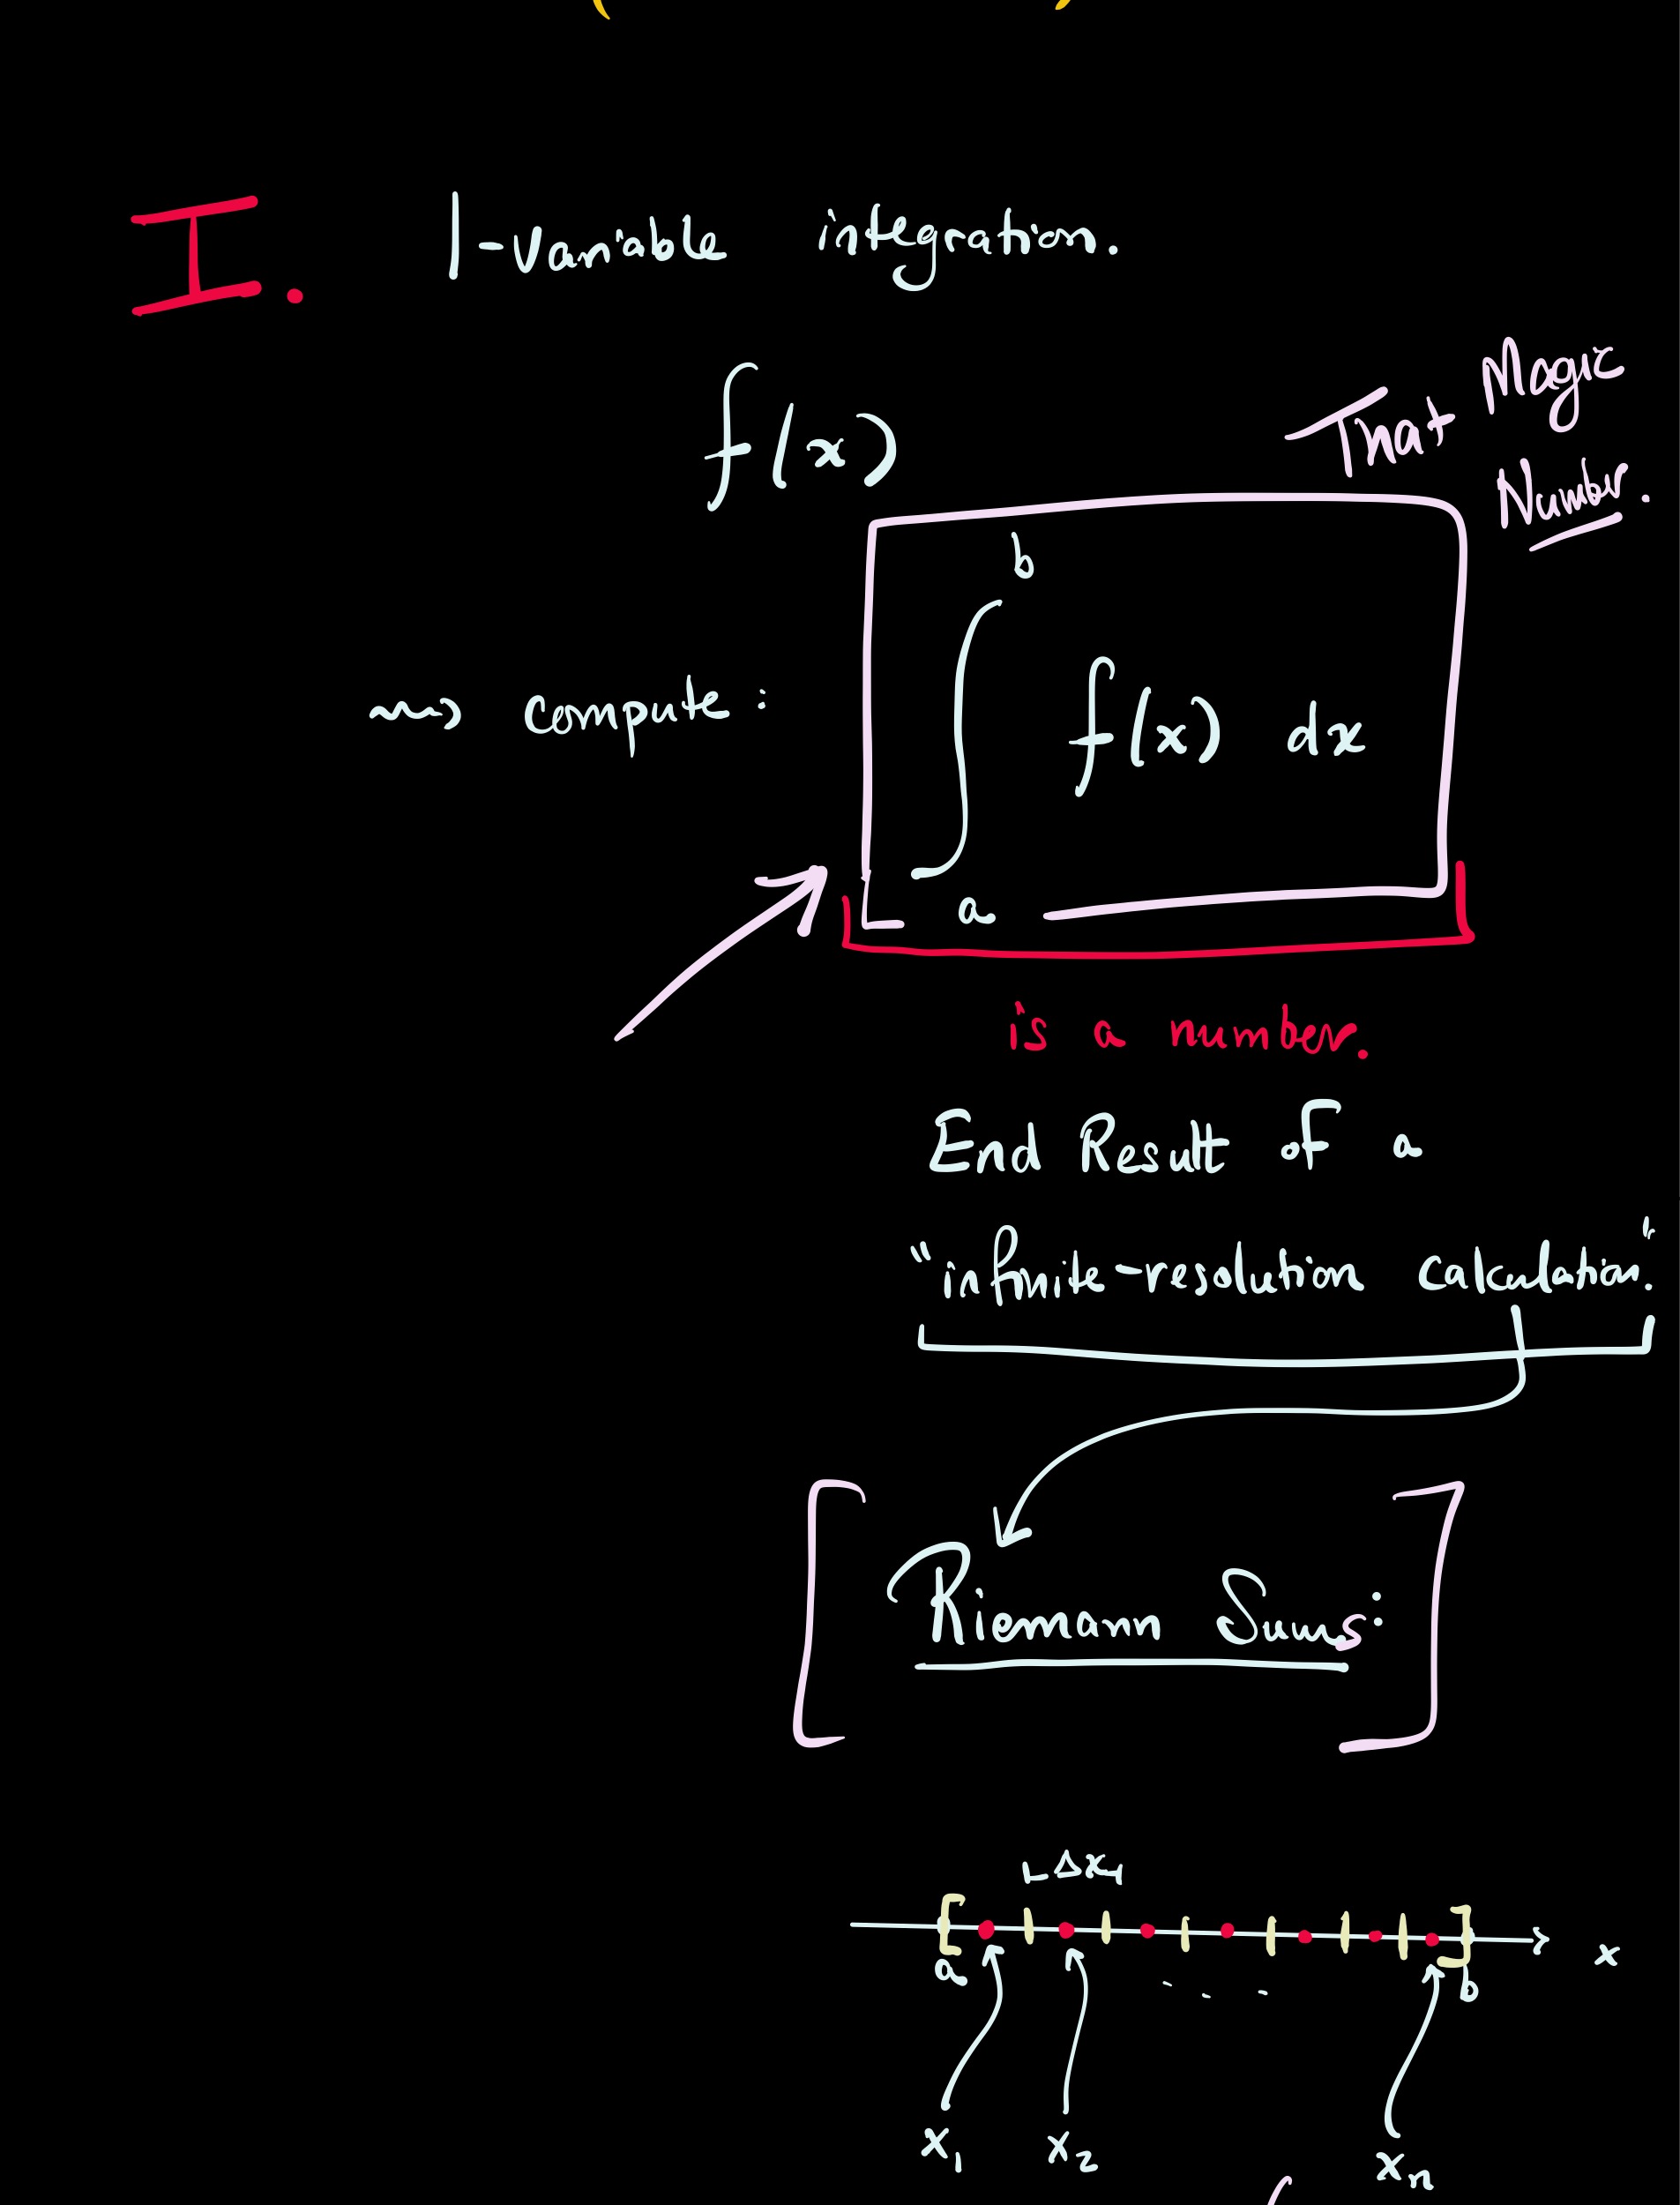 I. 1-variable integration.
f(x)
That Magic
Number.
b
~~> compute: ∫ f(x) dx
a
is a number.
End Result of a
"infinite-resolution calculation."
Riemann Sums:
Δx
[ ] x
a ... b
x₁ x₂ xₙ